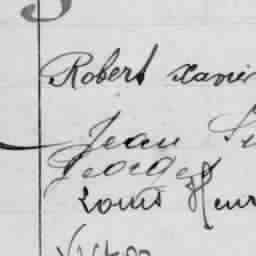 Robert Xavier
Jean
Georges
Louis Henr
Victor